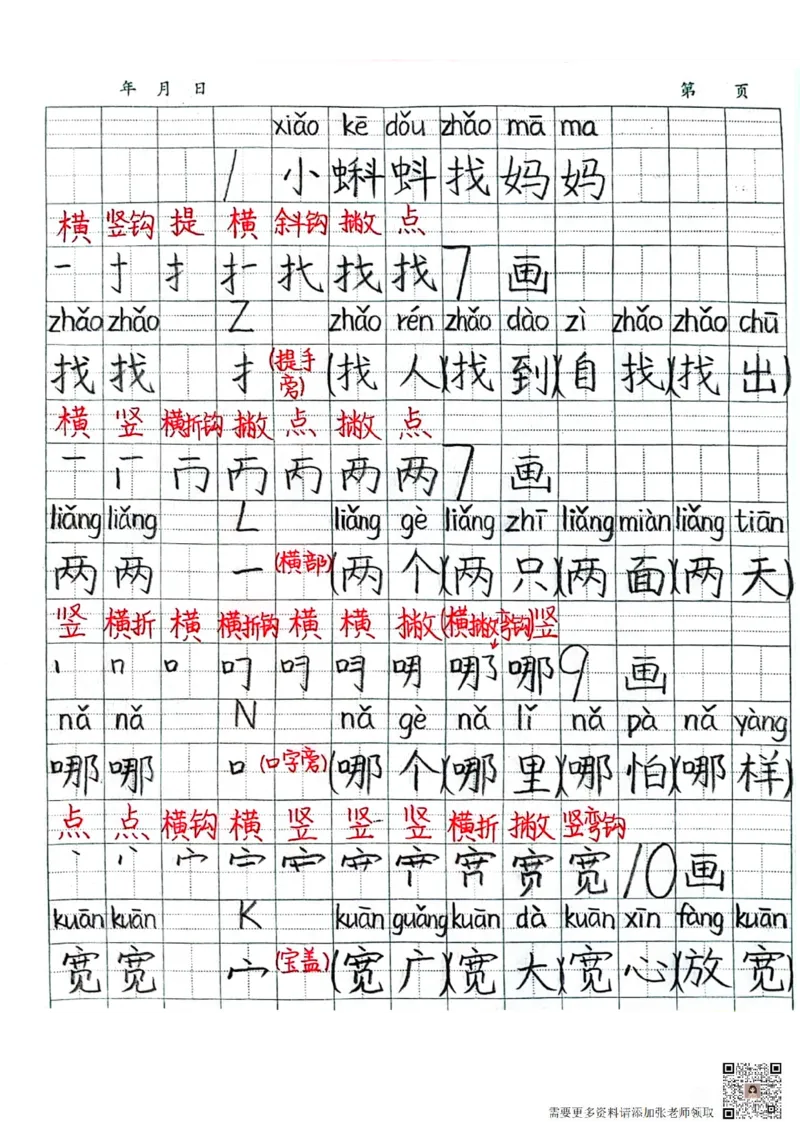 年 月 日 第 页
xiǎo kē dǒu zhǎo mā ma
1 小蝌蚪找妈妈
横 竖钩 提 横 斜钩 撇 点
找 7 画
zhǎo zhǎo Z zhǎo rén zhǎo dào zì zhǎo zhǎo chū
找 找 扌 (提手旁) (找 人)(找 到)(自 找)(找 出)
横 竖 横折钩 撇 点 撇 点
一 丆 丙 两 两 7 画
liǎng liǎng L liǎng gè liǎng zhī liǎng miàn liǎng tiān
两 两 一 (横部) (两 个)(两 只)(两 面)(两 天)
竖 横折 横 横折钩 横 横 撇 (横撇弯钩) 竖
丨 口 哪 哪 9 画
nǎ nǎ N nǎ gè nǎ lǐ nǎ pà nǎ yàng
哪 哪 口 (口字旁) (哪 个)(哪 里)(哪 怕)(哪 样)
点 点 横钩 横 竖 竖 竖 横折 撇 竖弯钩
丶 宀 宽 宽 10 画
kuān kuān K kuān guǎng kuān dà kuān xīn fàng kuān
宽 宽 宀 (宝盖) (宽 广)(宽 大)(宽 心)(放 宽)
需要更多资料请添加张老师领取